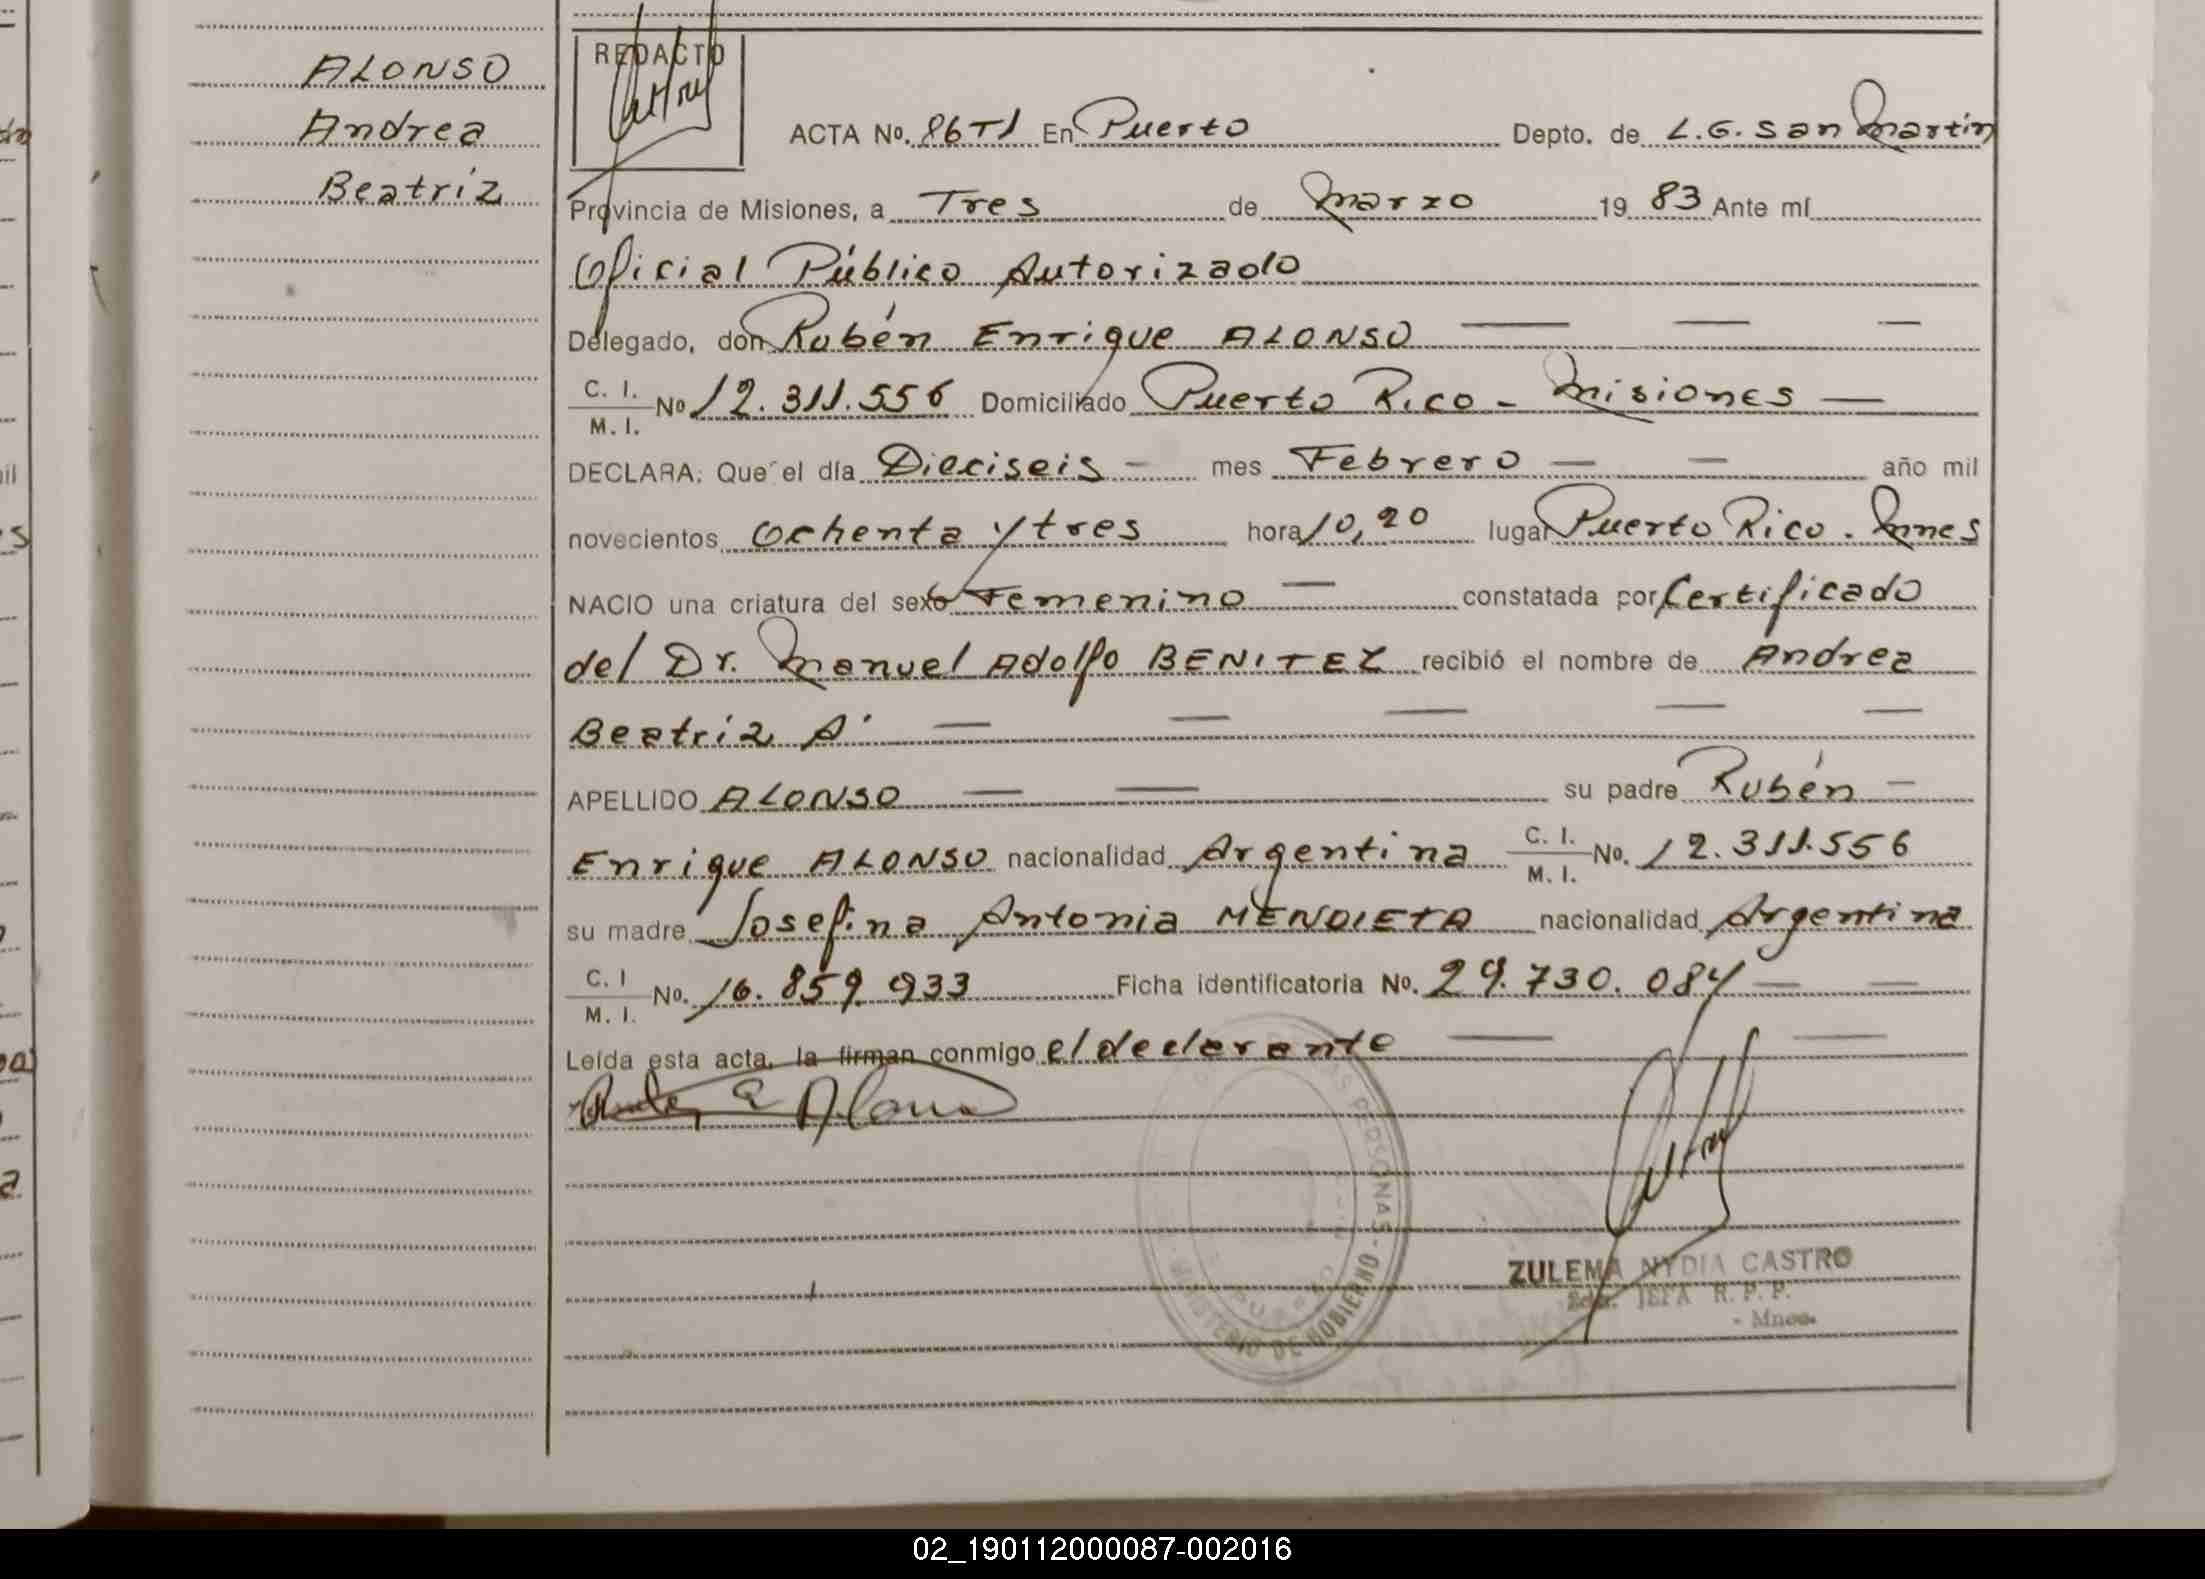 ALONSO
Andrea
Beatriz
REDACTO
ACTA No. 86T1 En Puerto Depto. de L.G. San Martín
Provincia de Misiones, a Tres de Marzo 19 83 Ante mí
Oficial Público Autorizado
Delegado, don Rubén Enrique ALONSO
C. I. / M. I. No 12.311.556 Domiciliado Puerto Rico - Misiones
DECLARA: Que el día Dieciseis mes Febrero año mil
novecientos Ochenta y tres hora 10,20 lugar Puerto Rico. Mnes
NACIO una criatura del sexo Femenino constatada por Certificado
del Dr. Manuel Adolfo BENITEZ recibió el nombre de Andrea
Beatriz A.
APELLIDO ALONSO su padre Rubén
Enrique ALONSO nacionalidad Argentina C. I. / M. I. No. 12.311.556
su madre Josefina Antonia MENDIETA nacionalidad Argentina
C. I / M. I. No. 16.859.933 Ficha identificatoria No. 29.730.084
Leída esta acta, la firman conmigo el declarante
E Alonso
PERSONAS - MINISTERIO DE GOBIERNO
ZULEMA NYDIA CASTRO
JEFA R. P. P.
- Mnes.
02_190112000087-002016